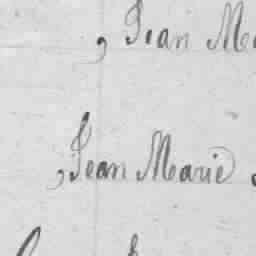 , Jean Ma
, Jean Marie